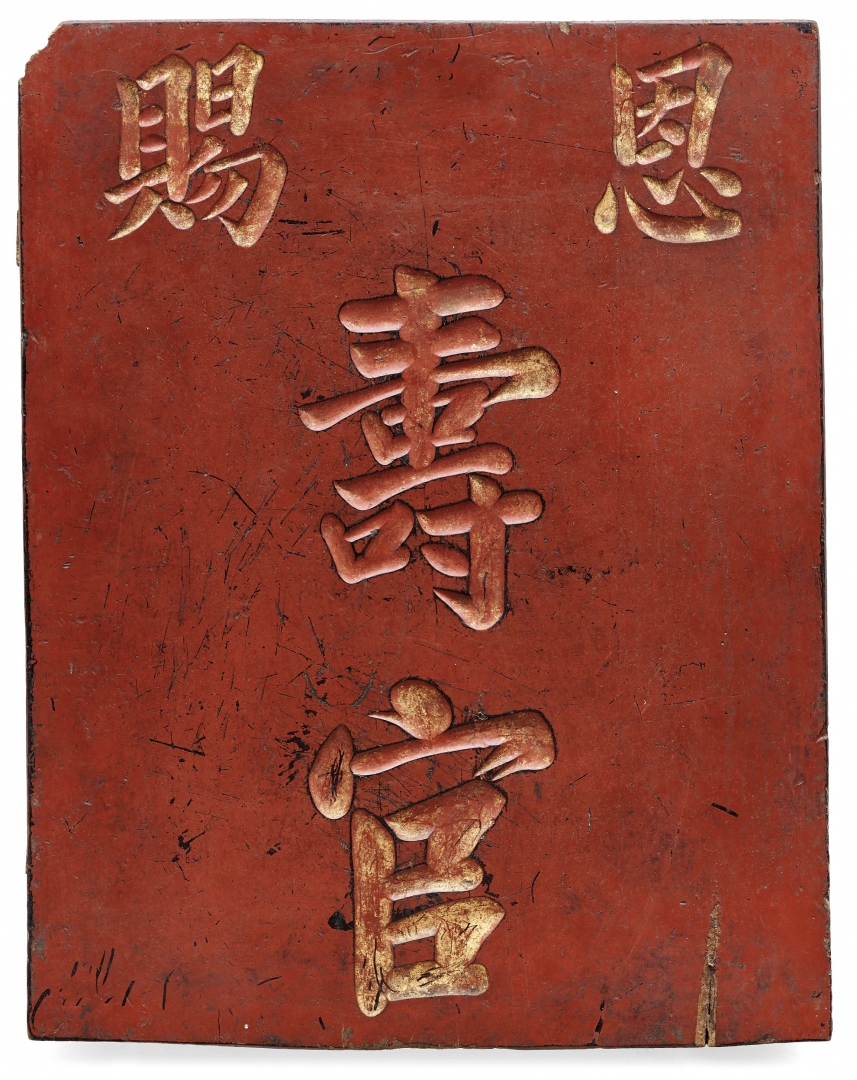 恩賜
壽官